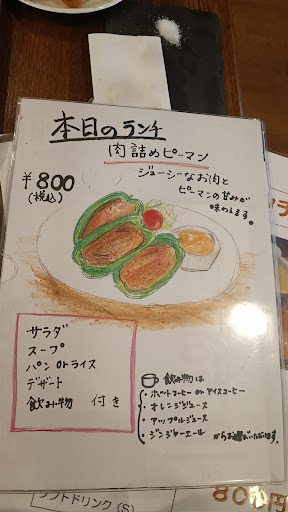 本日のランチ
肉詰めピーマン
¥800
(税込)
ジューシーなお肉と
ピーマンの甘みが
味わえます。
サラダ
スープ
パン or ライス
デザート
飲み物 付き
飲み物は
・ホットコーヒー or アイスコーヒー
・オレンジジュース
・アップルジュース
・ジンジャーエール
からお選びいただけます。
ソフトドリンク (S)
800円